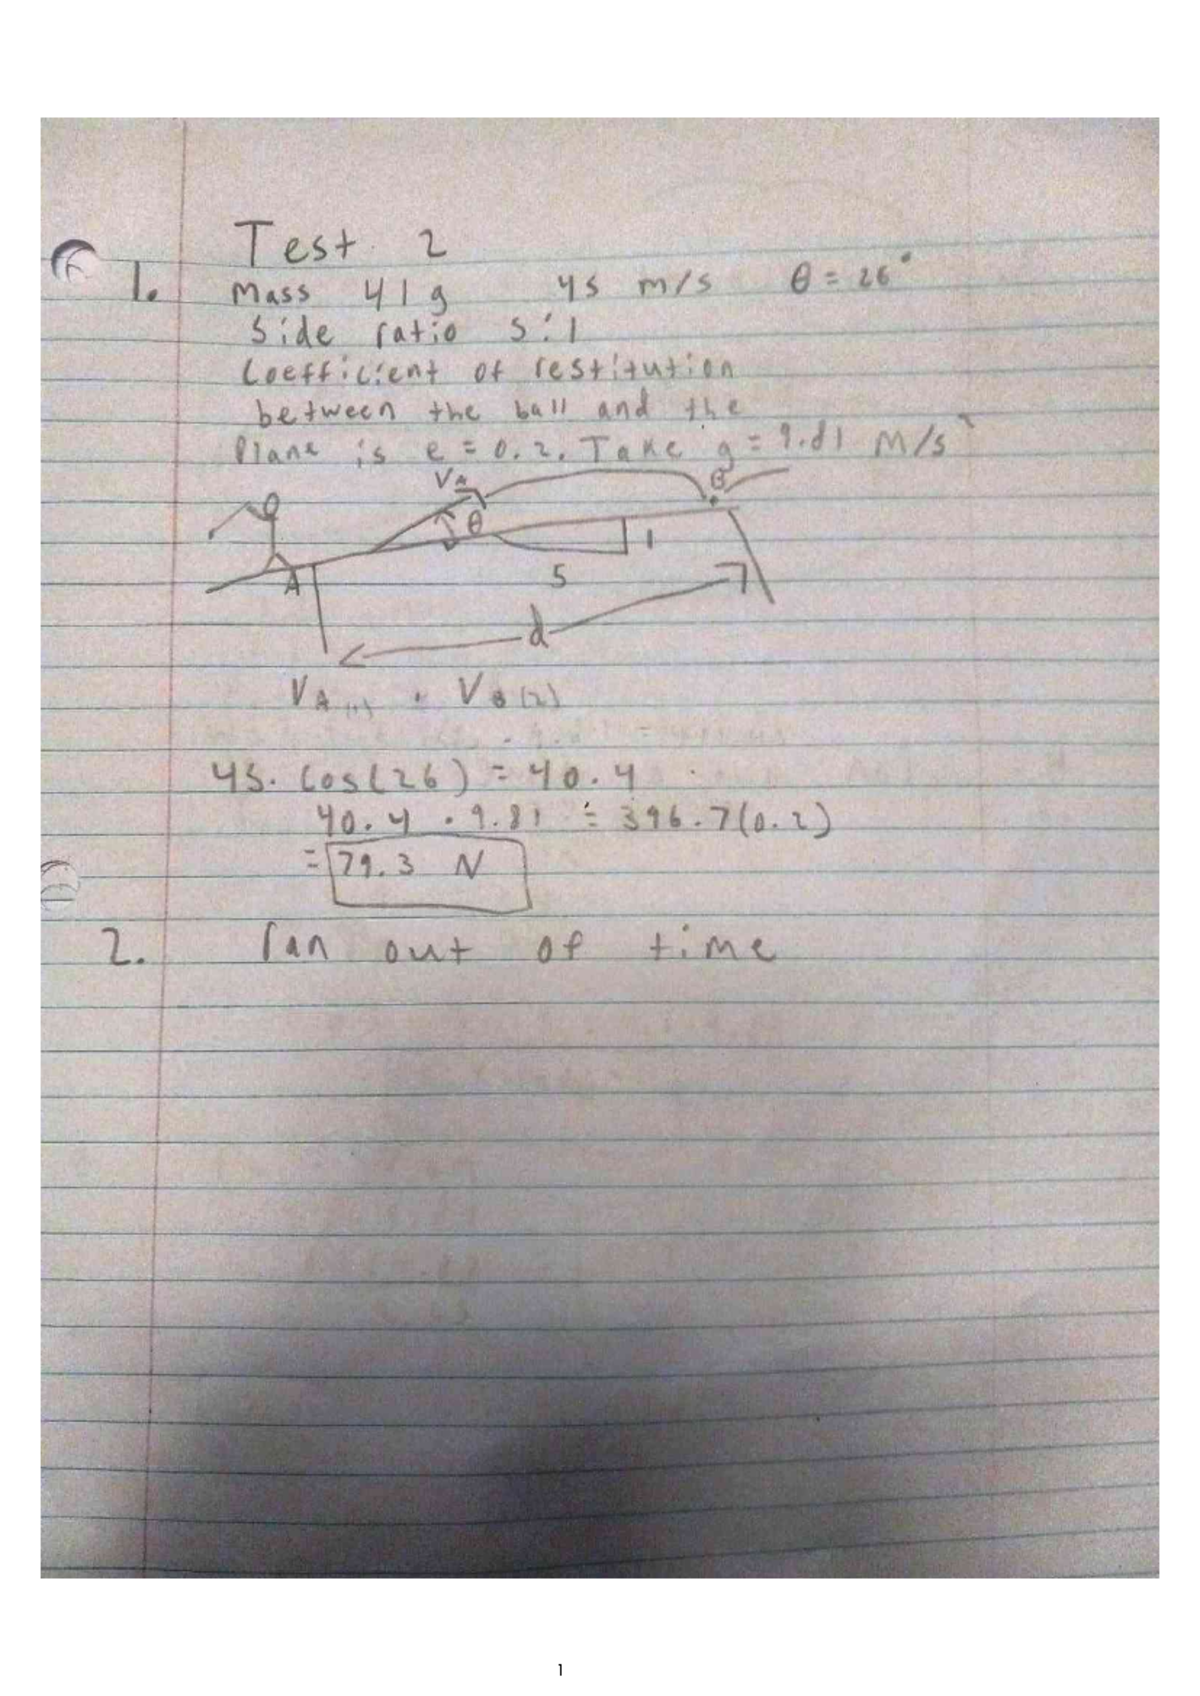 Test 2
1. Mass 41g 45 m/s θ = 26°
Side ratio 5:1
Coefficient of restitution
between the ball and the
Plane is e = 0.2. Take g = 9.81 M/s²
VA B
θ 1
A 5
d
VA (1) · VB (2)
45. Cos(26) = 40.4
40.4 · 9.81 = 396.7(0.2)
= 79.3 N
2. ran out of time
1